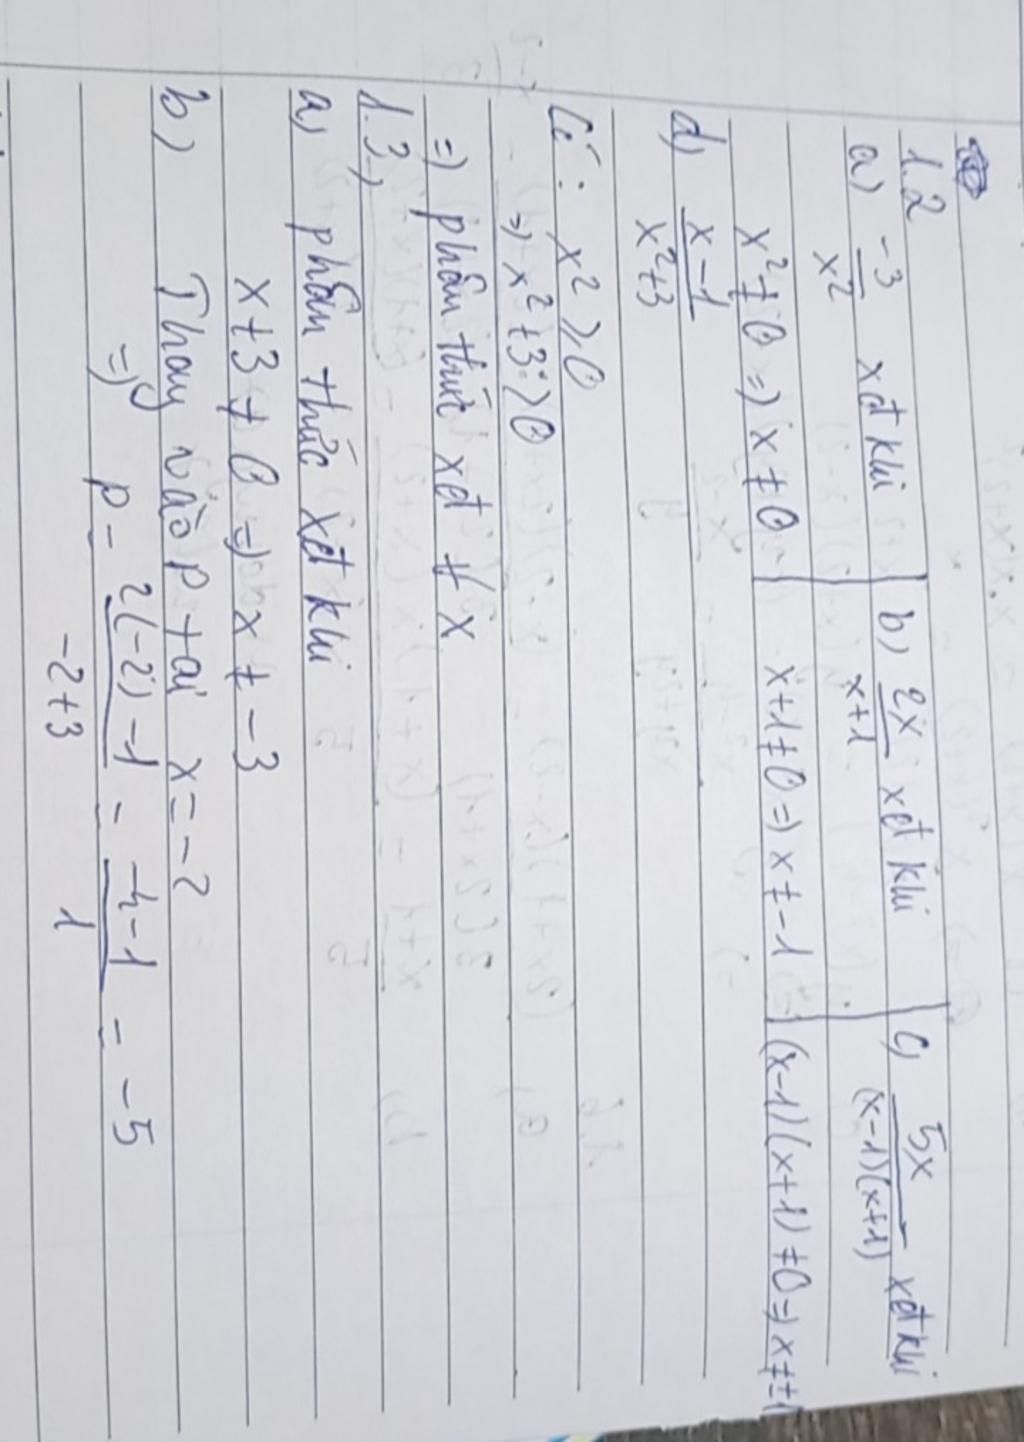 1.2
a) -3/x² xđ khi | b) 2x/x+1 xđ khi | c) 5x/(x-1)(x+1) xđ khi
x² ≠ 0 => x ≠ 0 | x+1 ≠ 0 => x ≠ -1 | (x-1)(x+1) ≠ 0 => x ≠ ±1
d) x-1/x²+3
Có: x² ≥ 0
=> x² + 3 > 0
=> phân thức xđ ∀ x
1.3)
a) phân thức xđ khi
x+3 ≠ 0 => x ≠ -3
b) Thay vào P tại x = -2
=> P = 2(-2) -1/-2+3 = -4-1/1 = -5